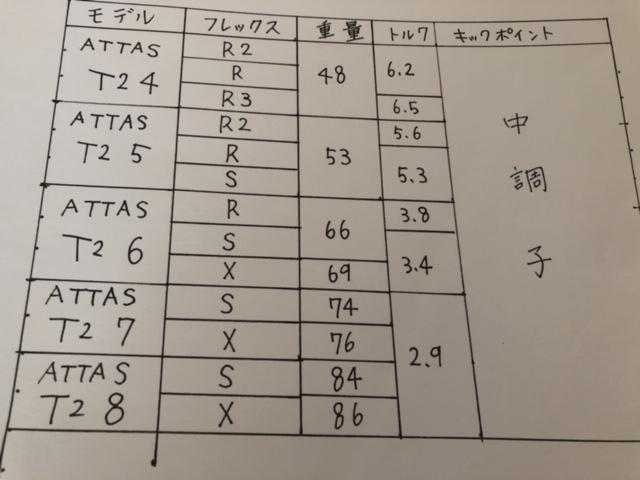 モデル フレックス 重量 トルク キックポイント
ATTAS T2 4 R2 48 6.2 中調子
R
R3 6.5
ATTAS T2 5 R2 53 5.6
R 5.3
S
ATTAS T2 6 R 66 3.8
S 3.4
X 69
ATTAS T2 7 S 74 2.9
X 76
ATTAS T2 8 S 84
X 86